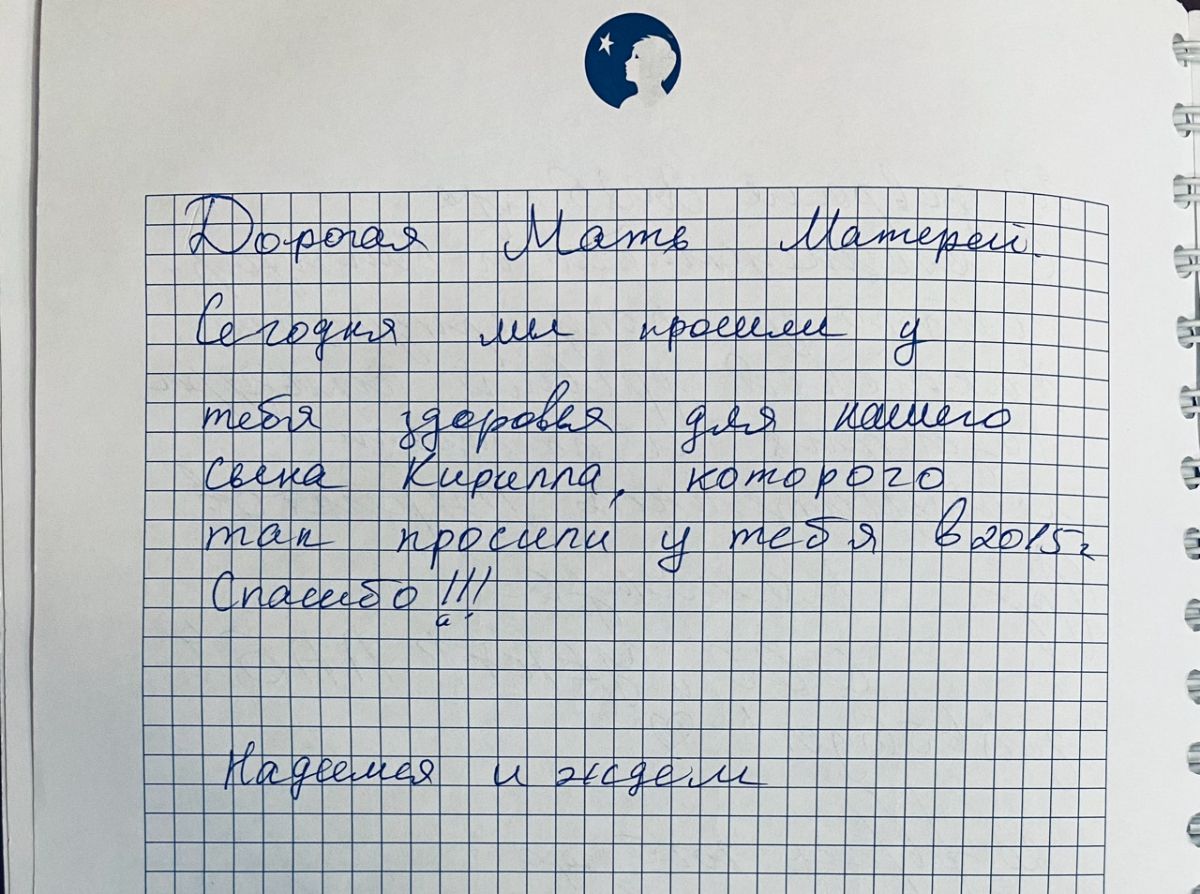 Дорогая Мать Матерей.
Сегодня мы просили у
тебя здоровья для нашего
сына Кирилла, которого
так просили у тебя в 2015г
Спасибо!!!
Надеемся и ждем